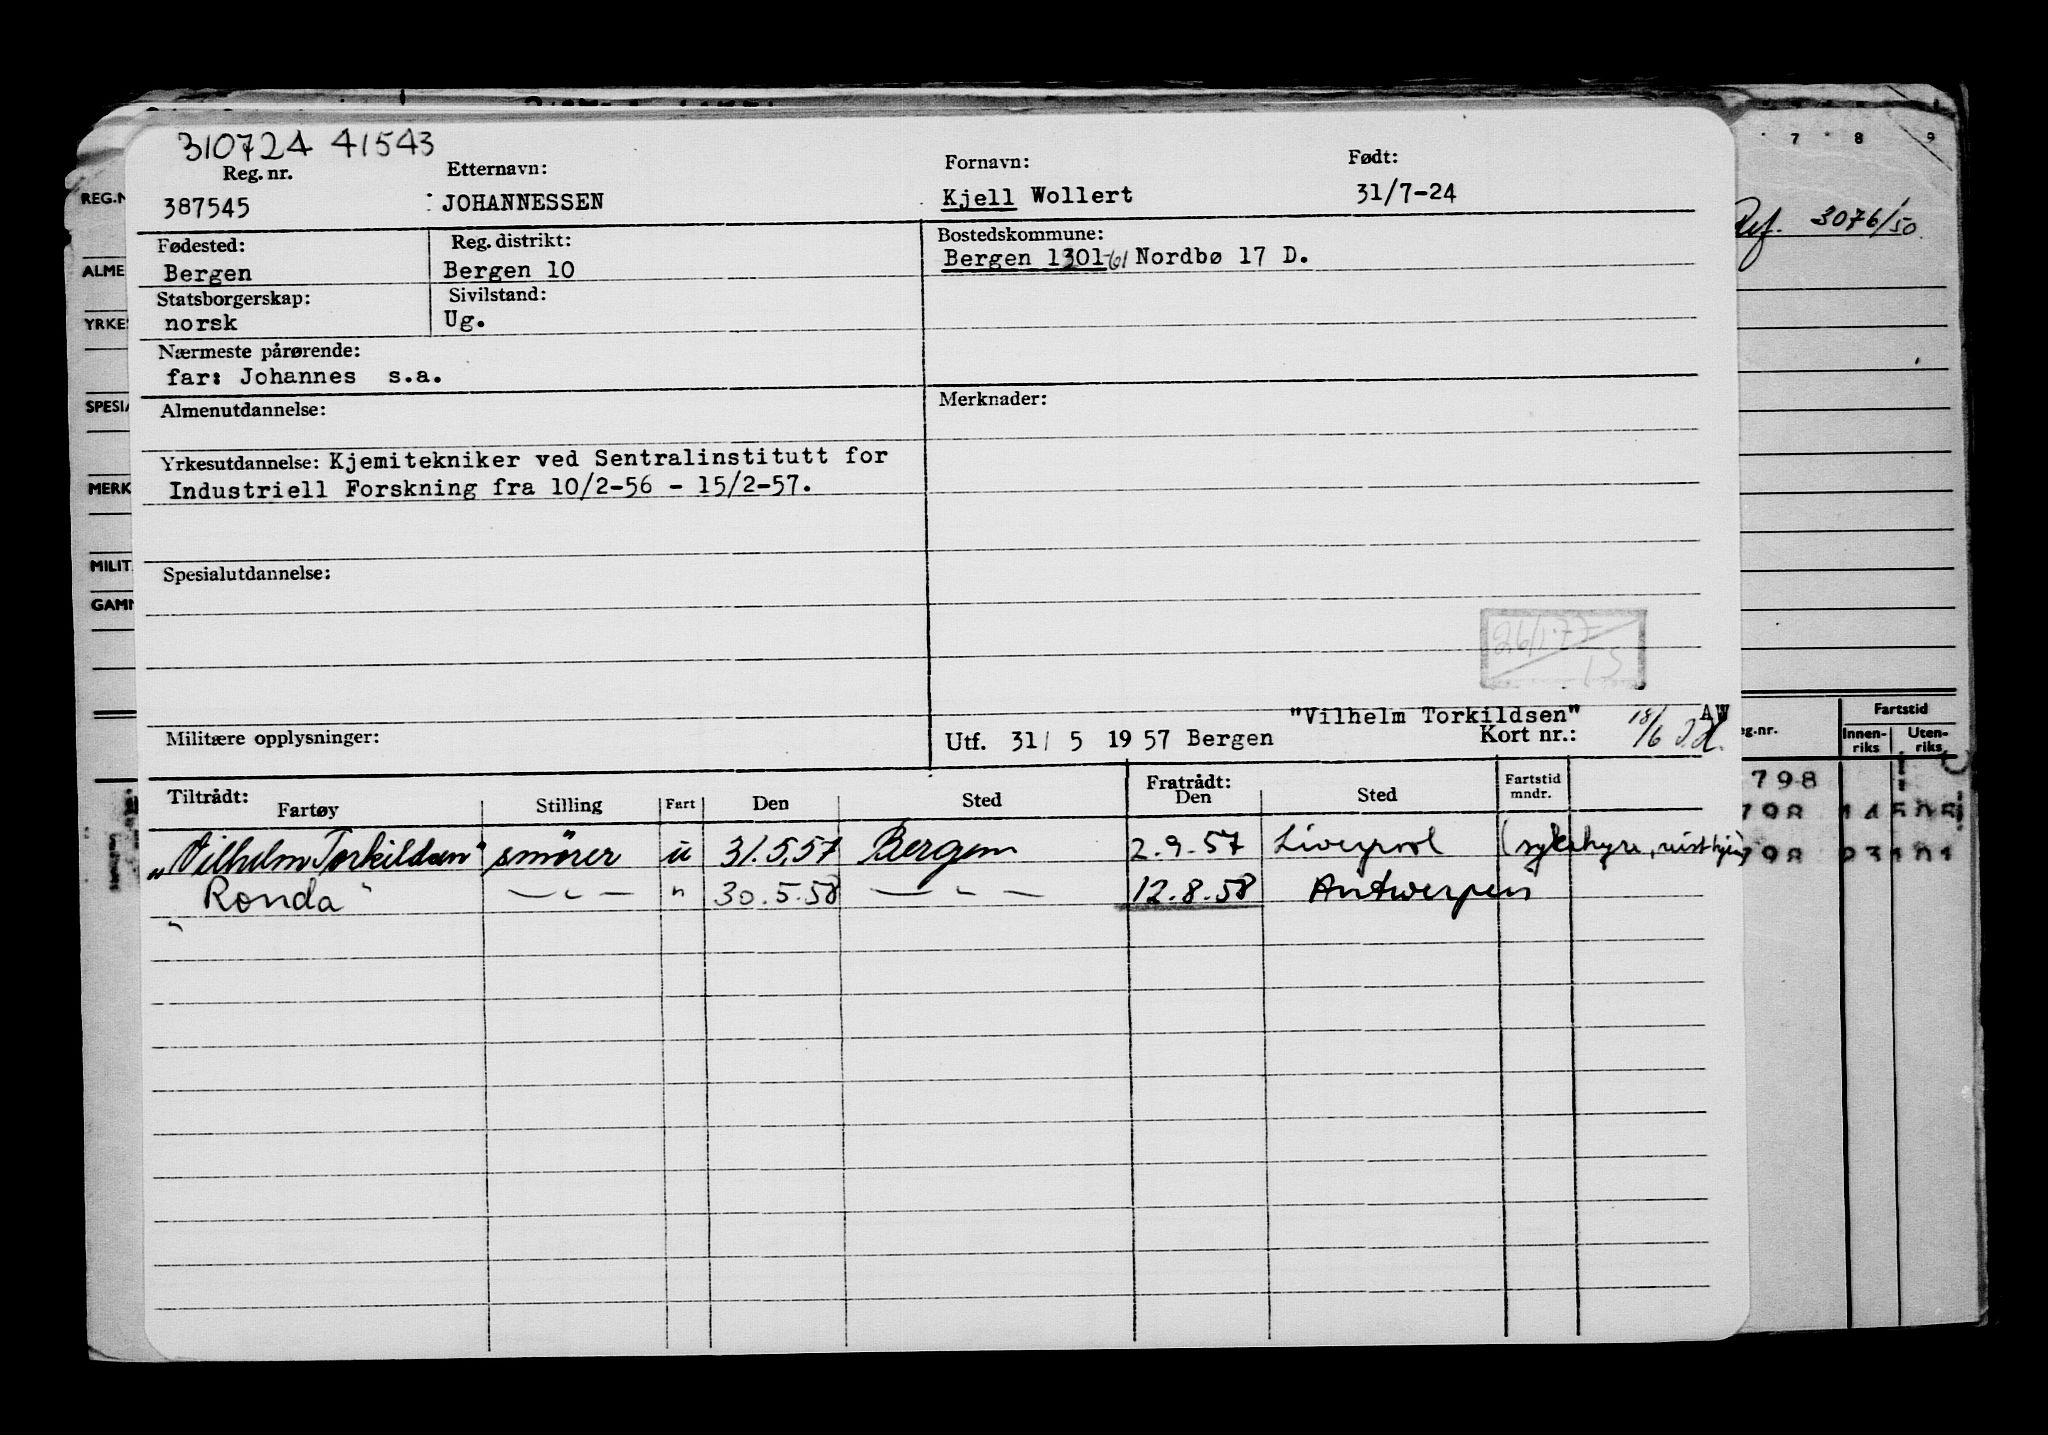 310724 41543
Reg. nr. Etternavn: Fornavn: Født:
387545 JOHANNESSEN Kjell Wollert 31/7-24
Fødested: Reg. distrikt: Bostedskommune:
Bergen Bergen 10 Bergen 1301-61 Nordbø 17 D.
Statsborgerskap: Sivilstand:
norsk Ug.
Nærmeste pårørende:
far: Johannes s.a.
Almenutdannelse: Merknader:
Yrkesutdannelse: Kjemitekniker ved Sentralinstitutt for
Industriell Forskning fra 10/2-56 - 15/2-57.
Spesialutdannelse:
26/1-77
15
"Vilhelm Torkildsen" AW
Militære opplysninger: Utf. 31/ 5 1957 Bergen Kort nr.: 18/6
Tiltrådt: Fratrådt: Fartstid
Fartøy Stilling Fart Den Sted Den Sted mndr.
"Vilhelm Torkildsen" smører u 31.5.57 Bergen 2.9.57 Liverpool (sykehyre,
"Ronda" — " — " 30.5.58 — " — 12.8.58 Antwerpen
7 8 9
REG.N
Ref. 3076/50
ALME
YRKES
SPESIA
MERK
MILIT
GAMM
Fartstid
eg.nr. Innen-riks Uten-riks
798
798 14505
798 23101